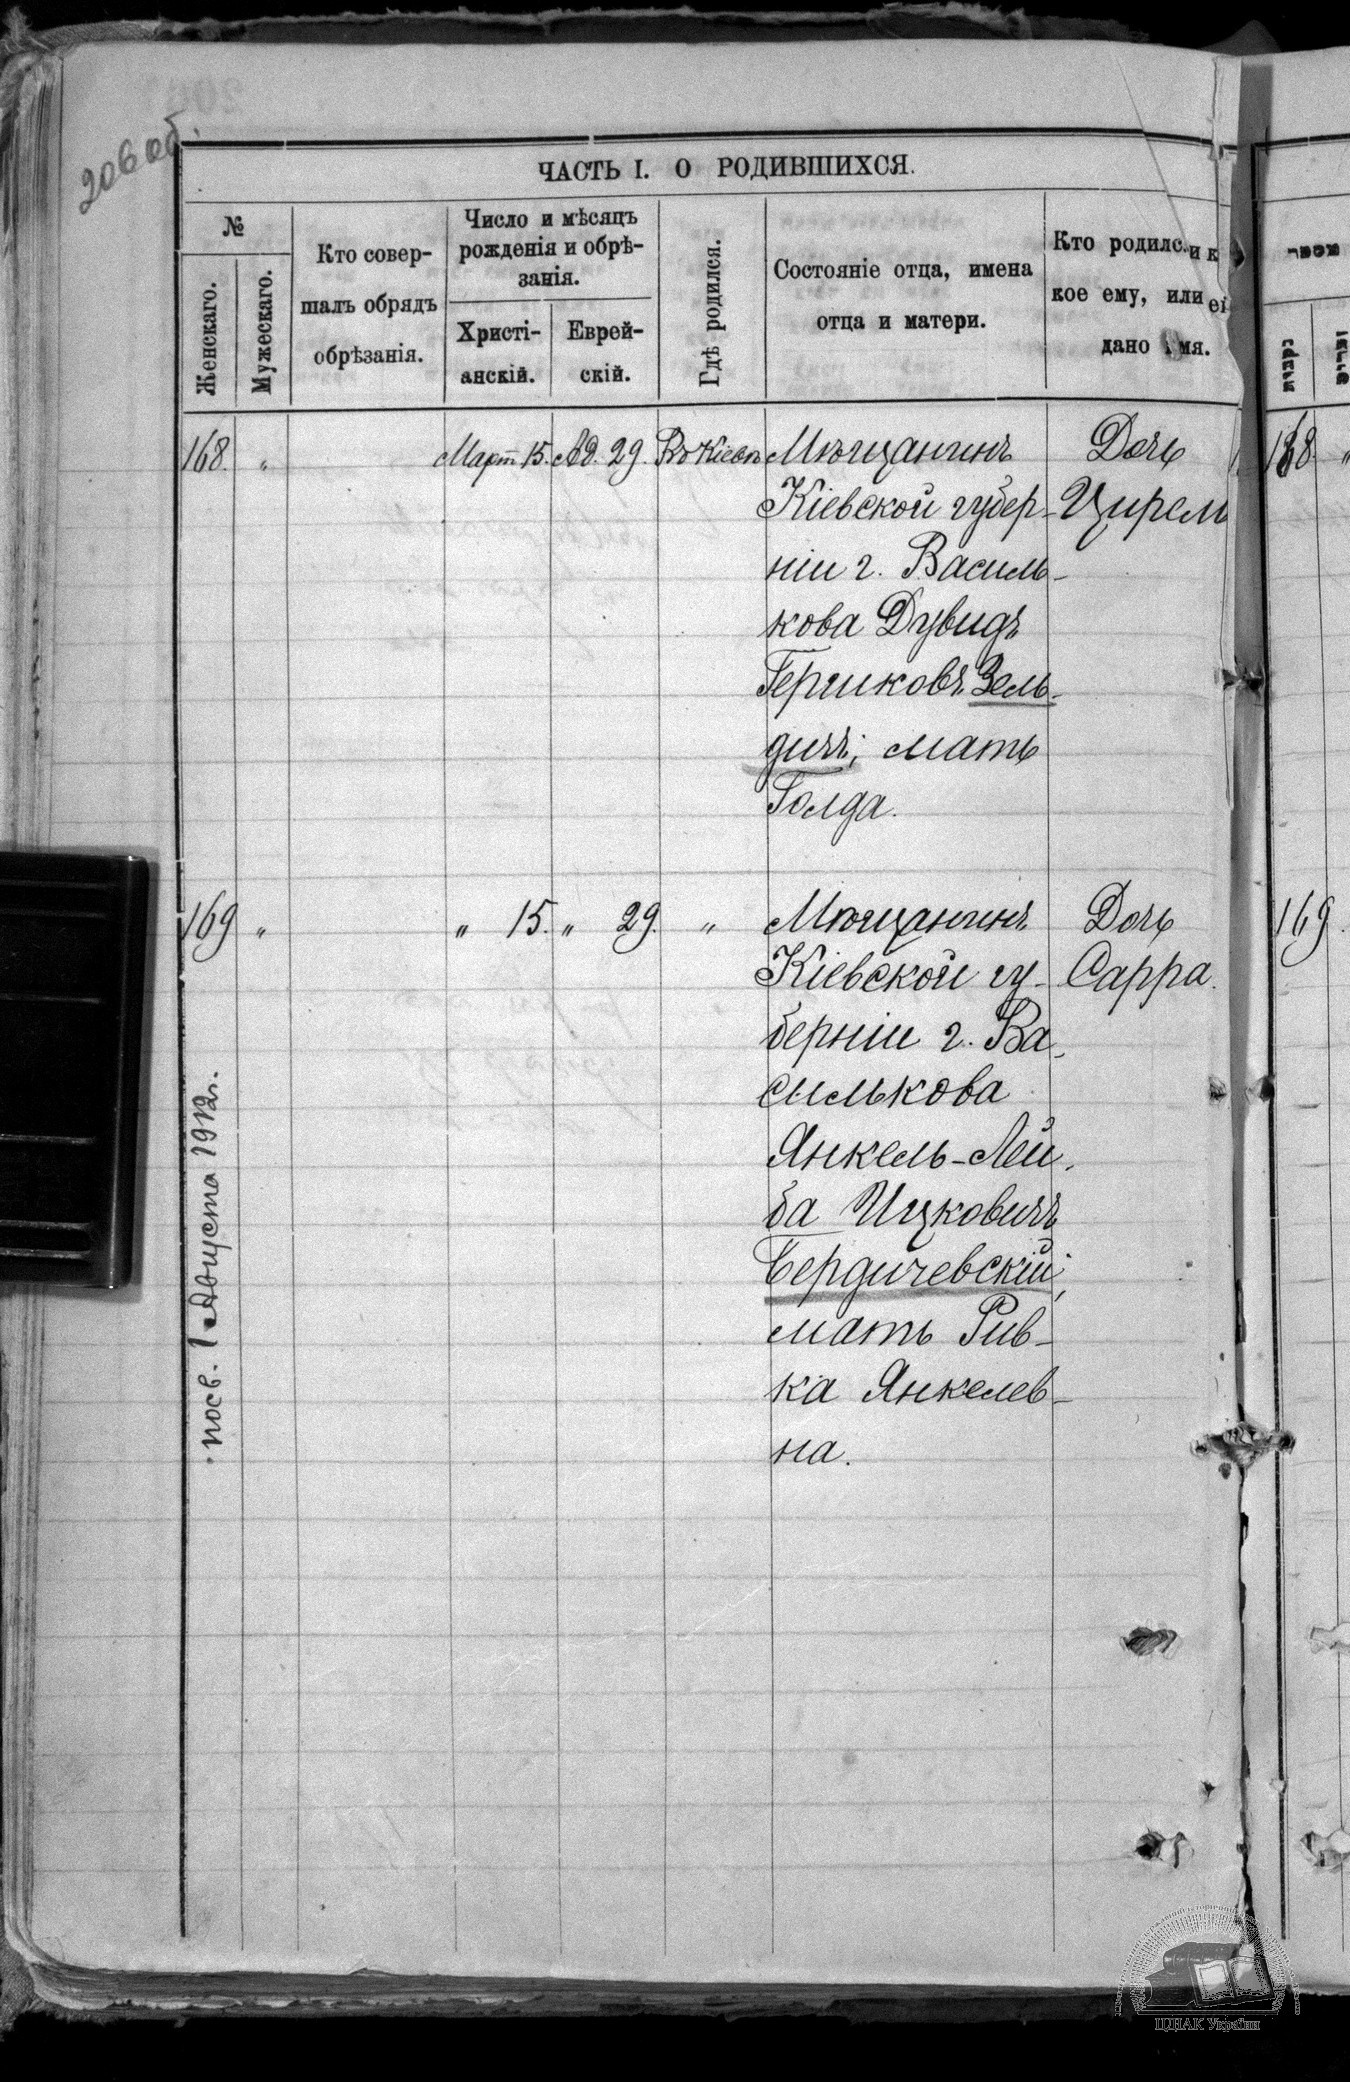 206 об.
ЧАСТЬ I. О РОДИВШИХСЯ.
№
Женскаго.
Мужескаго.
Кто совер-
шалъ обрядъ
обрѣзанія.
Число и мѣсяцъ
рожденія и обрѣ-
занія.
Христі-
анскій.
Еврей-
скій.
Гдѣ родился.
Состояніе отца, имена
отца и матери.
Кто родился и ка
кое ему, или ей
дано имя.
168. „ Март 15. Ад. 29. Въ Кіевѣ Мѣщанинъ Дочь
Кіевской губер- Цирель
ніи г. Василь-
кова Дувидъ
Гершковъ Зель-
дичъ; мать
Голда.
169 „ „ 15. „ 29. „ Мѣщанинъ Дочь
Кіевской гу- Сарра.
берніи г. Ва-
силькова
Янкель-Лей-
ба Ицковичъ
Бердичевскій;
мать Рив-
ка Янкелев-
на.
посв. 1 Августа 1912 г.
מספר
נקבות
זכרים
168 „
169.
ЦДІАК України